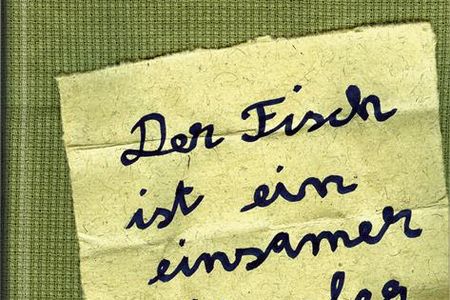 Der Fisch
ist ein
einsamer